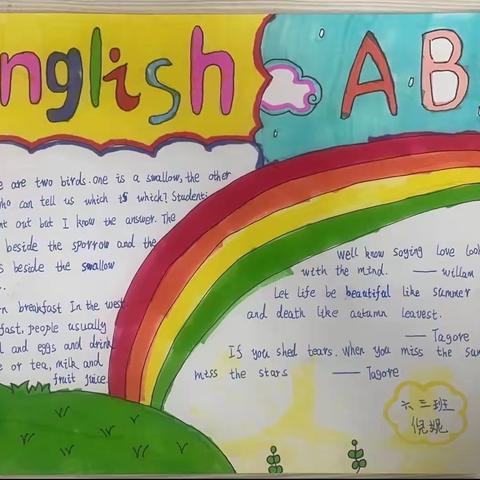 nglish
AB
e are two birds. one is a swallow, the other
who can tell us which is which? Student
nt out but I know the answer. The
beside the sporrow and the
s beside the swallow
rn breakfast In the west
fast, people usually
l and eggs and drink
e or tea, milk and
fruit juice.
Well know soying Love loo
with the mind. —— willam
Let life be beautiful like summer
and death like autumn leavest.
—— Tagore
If you shed tears. When you miss the sun
miss the stars —— Tagore
六三班
倪婉